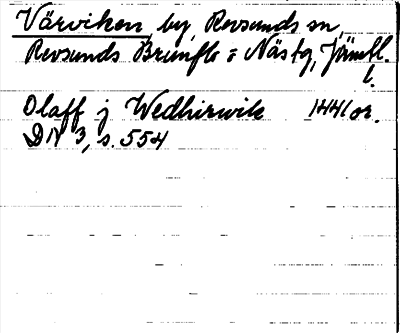 Värviken, by, Revsunds sn,
Revsunds Brunflo = Näs tg, Jämtl.
l.
Olaff j Wedhirwik 1441 or.
DN 3, s. 554